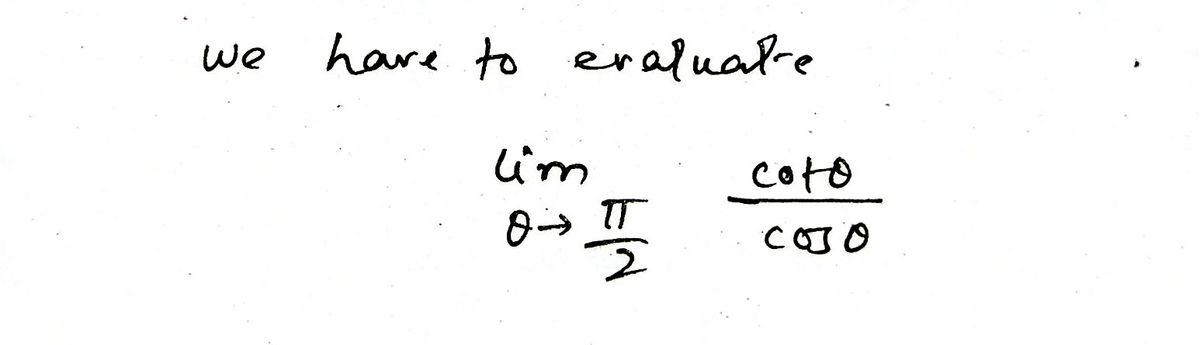 we have to evaluate
lim θ→π/2 cotθ/cosθ